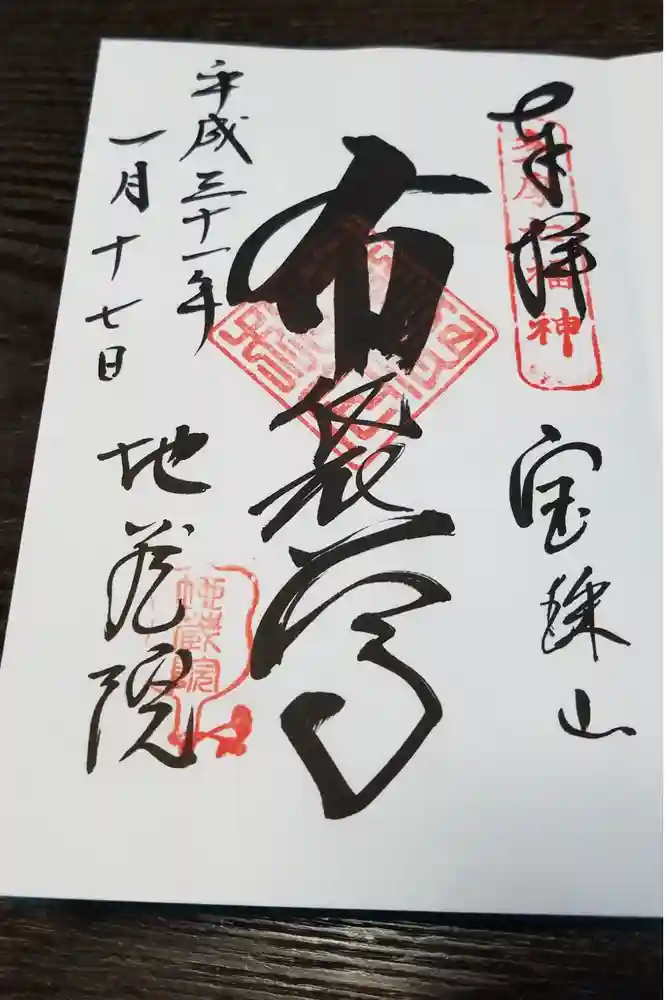 奉拝
福神
宝珠山
布袋尊
平成三十一年
一月十七日
地蔵院
地蔵院